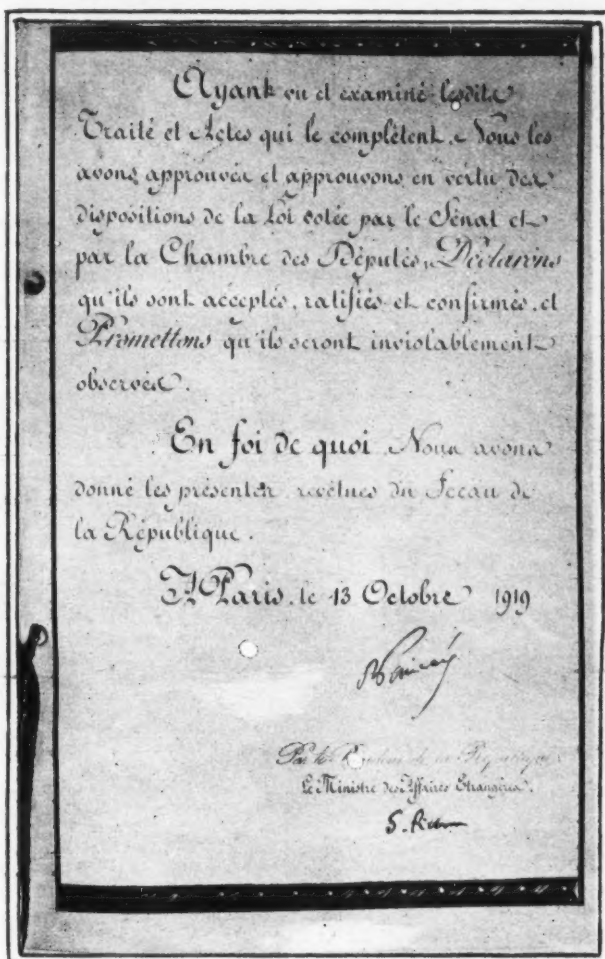 Ayant vu et examiné lesdits
Traité et Actes qui le complètent, Nous les
avons approuvés et approuvons en vertu des
dispositions de la Loi votée par le Sénat et
par la Chambre des Députés, Déclarons
qu'ils sont acceptés, ratifiés et confirmés, et
Promettons qu'ils seront inviolablement
observés.
En foi de quoi, Nous avons
donné les présentes, revêtues du Sceau de
la République.
A Paris, le 13 Octobre 1919
R Poincaré
Par le Président de la République
Le Ministre des Affaires Etrangères.
S. Pichon